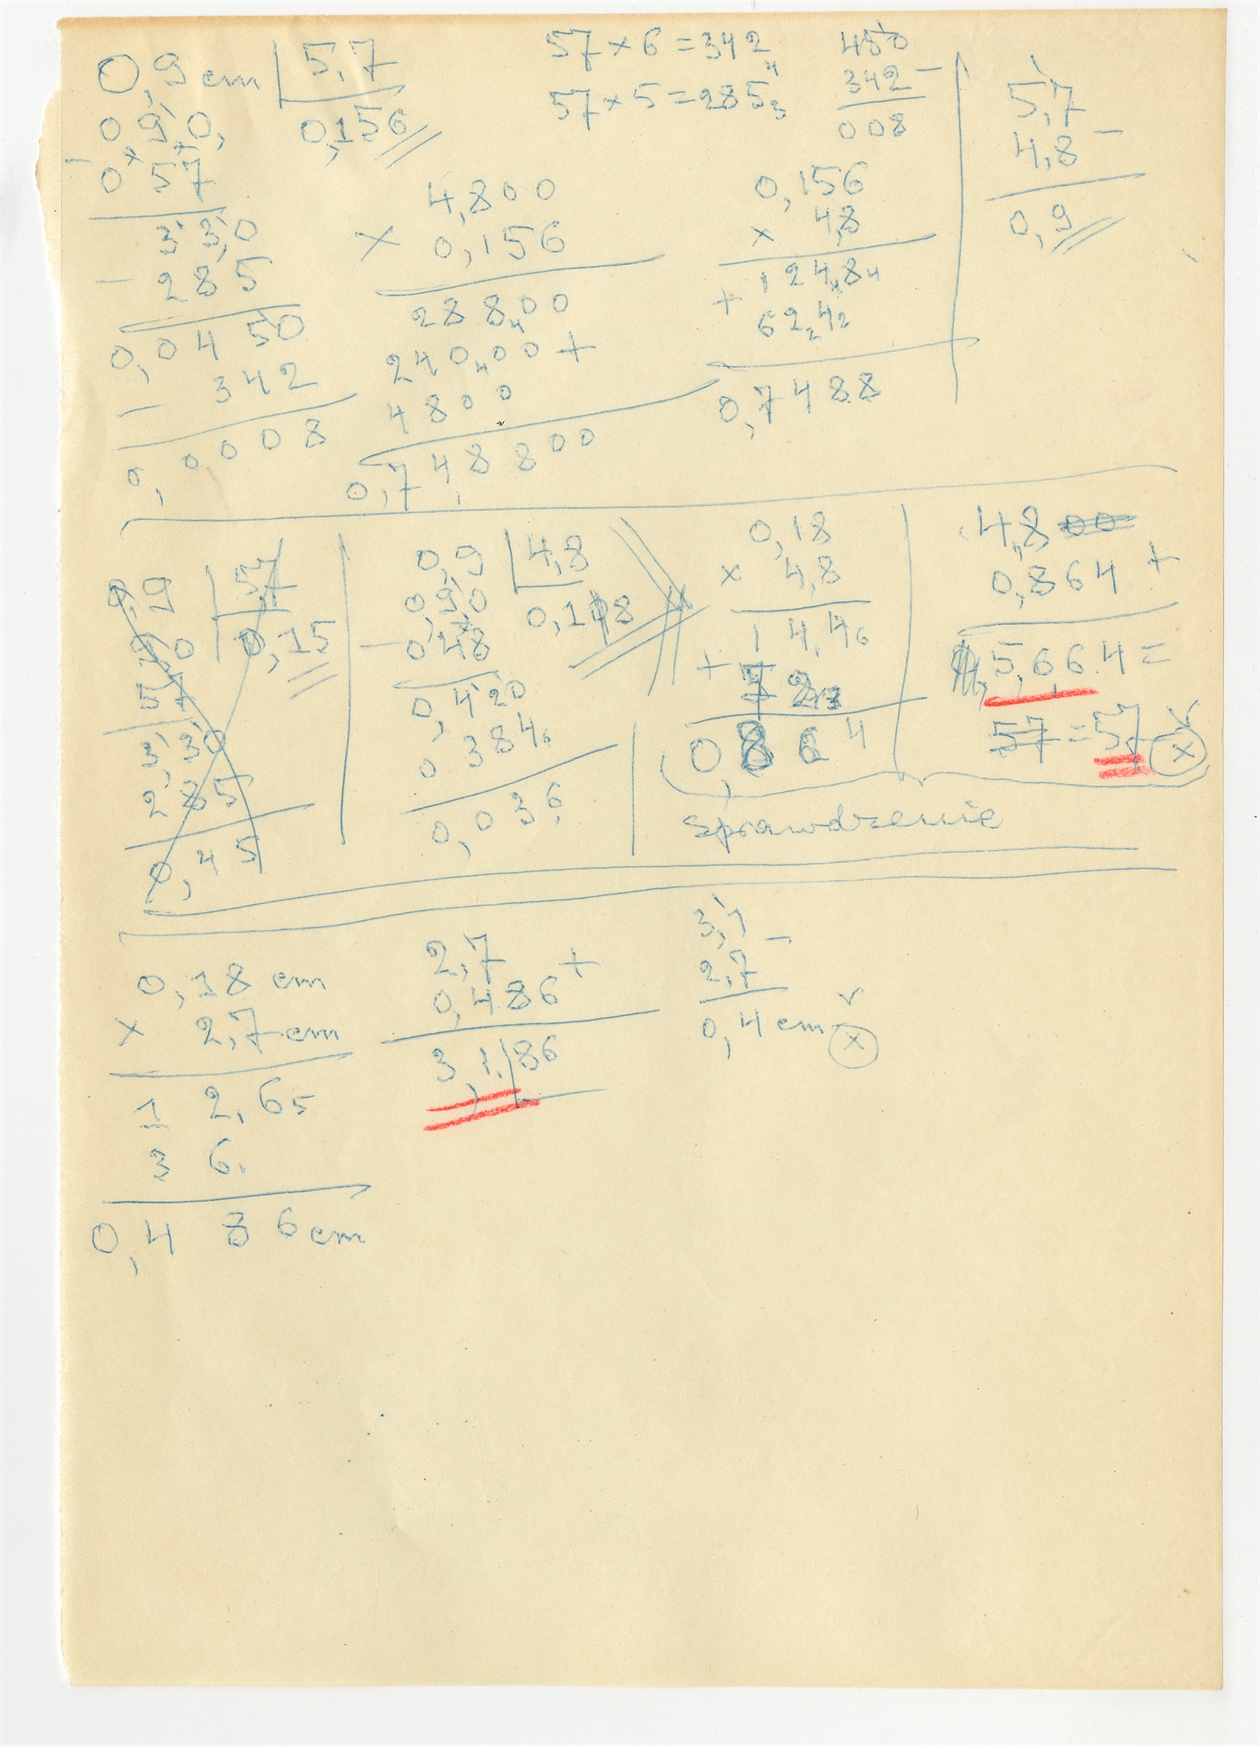 0,9 cm | 5,7
0,9,0, 0,156
0 57
3 3,0
- 285
0,04 50
- 342
0,0008
57 × 6 = 342
57 × 5 = 285
450
342 -
008
4,800
× 0,156
28800
24000 +
4800
0,748800
0,156
× 4,8
1248
+ 624
0,7488
5,7
4,8 -
0,9
9,9 | 57
90 0,15
57
3,30
2 85
0,45
0,9 | 4,8
0,9,0 0,188
- 0 48
0,420
0 384
0,036
0,18
× 4,8
1 44
+ 72
0,864
4,800
0,864 +
5,664 =
57 = 57 ×
Sprawdzenie
0,18 cm
× 2,7 cm
1 2,6
3 6.
0,4 86 cm
2,7 +
0,486
3,1.|86
3,1 -
2,7
0,4 cm ×